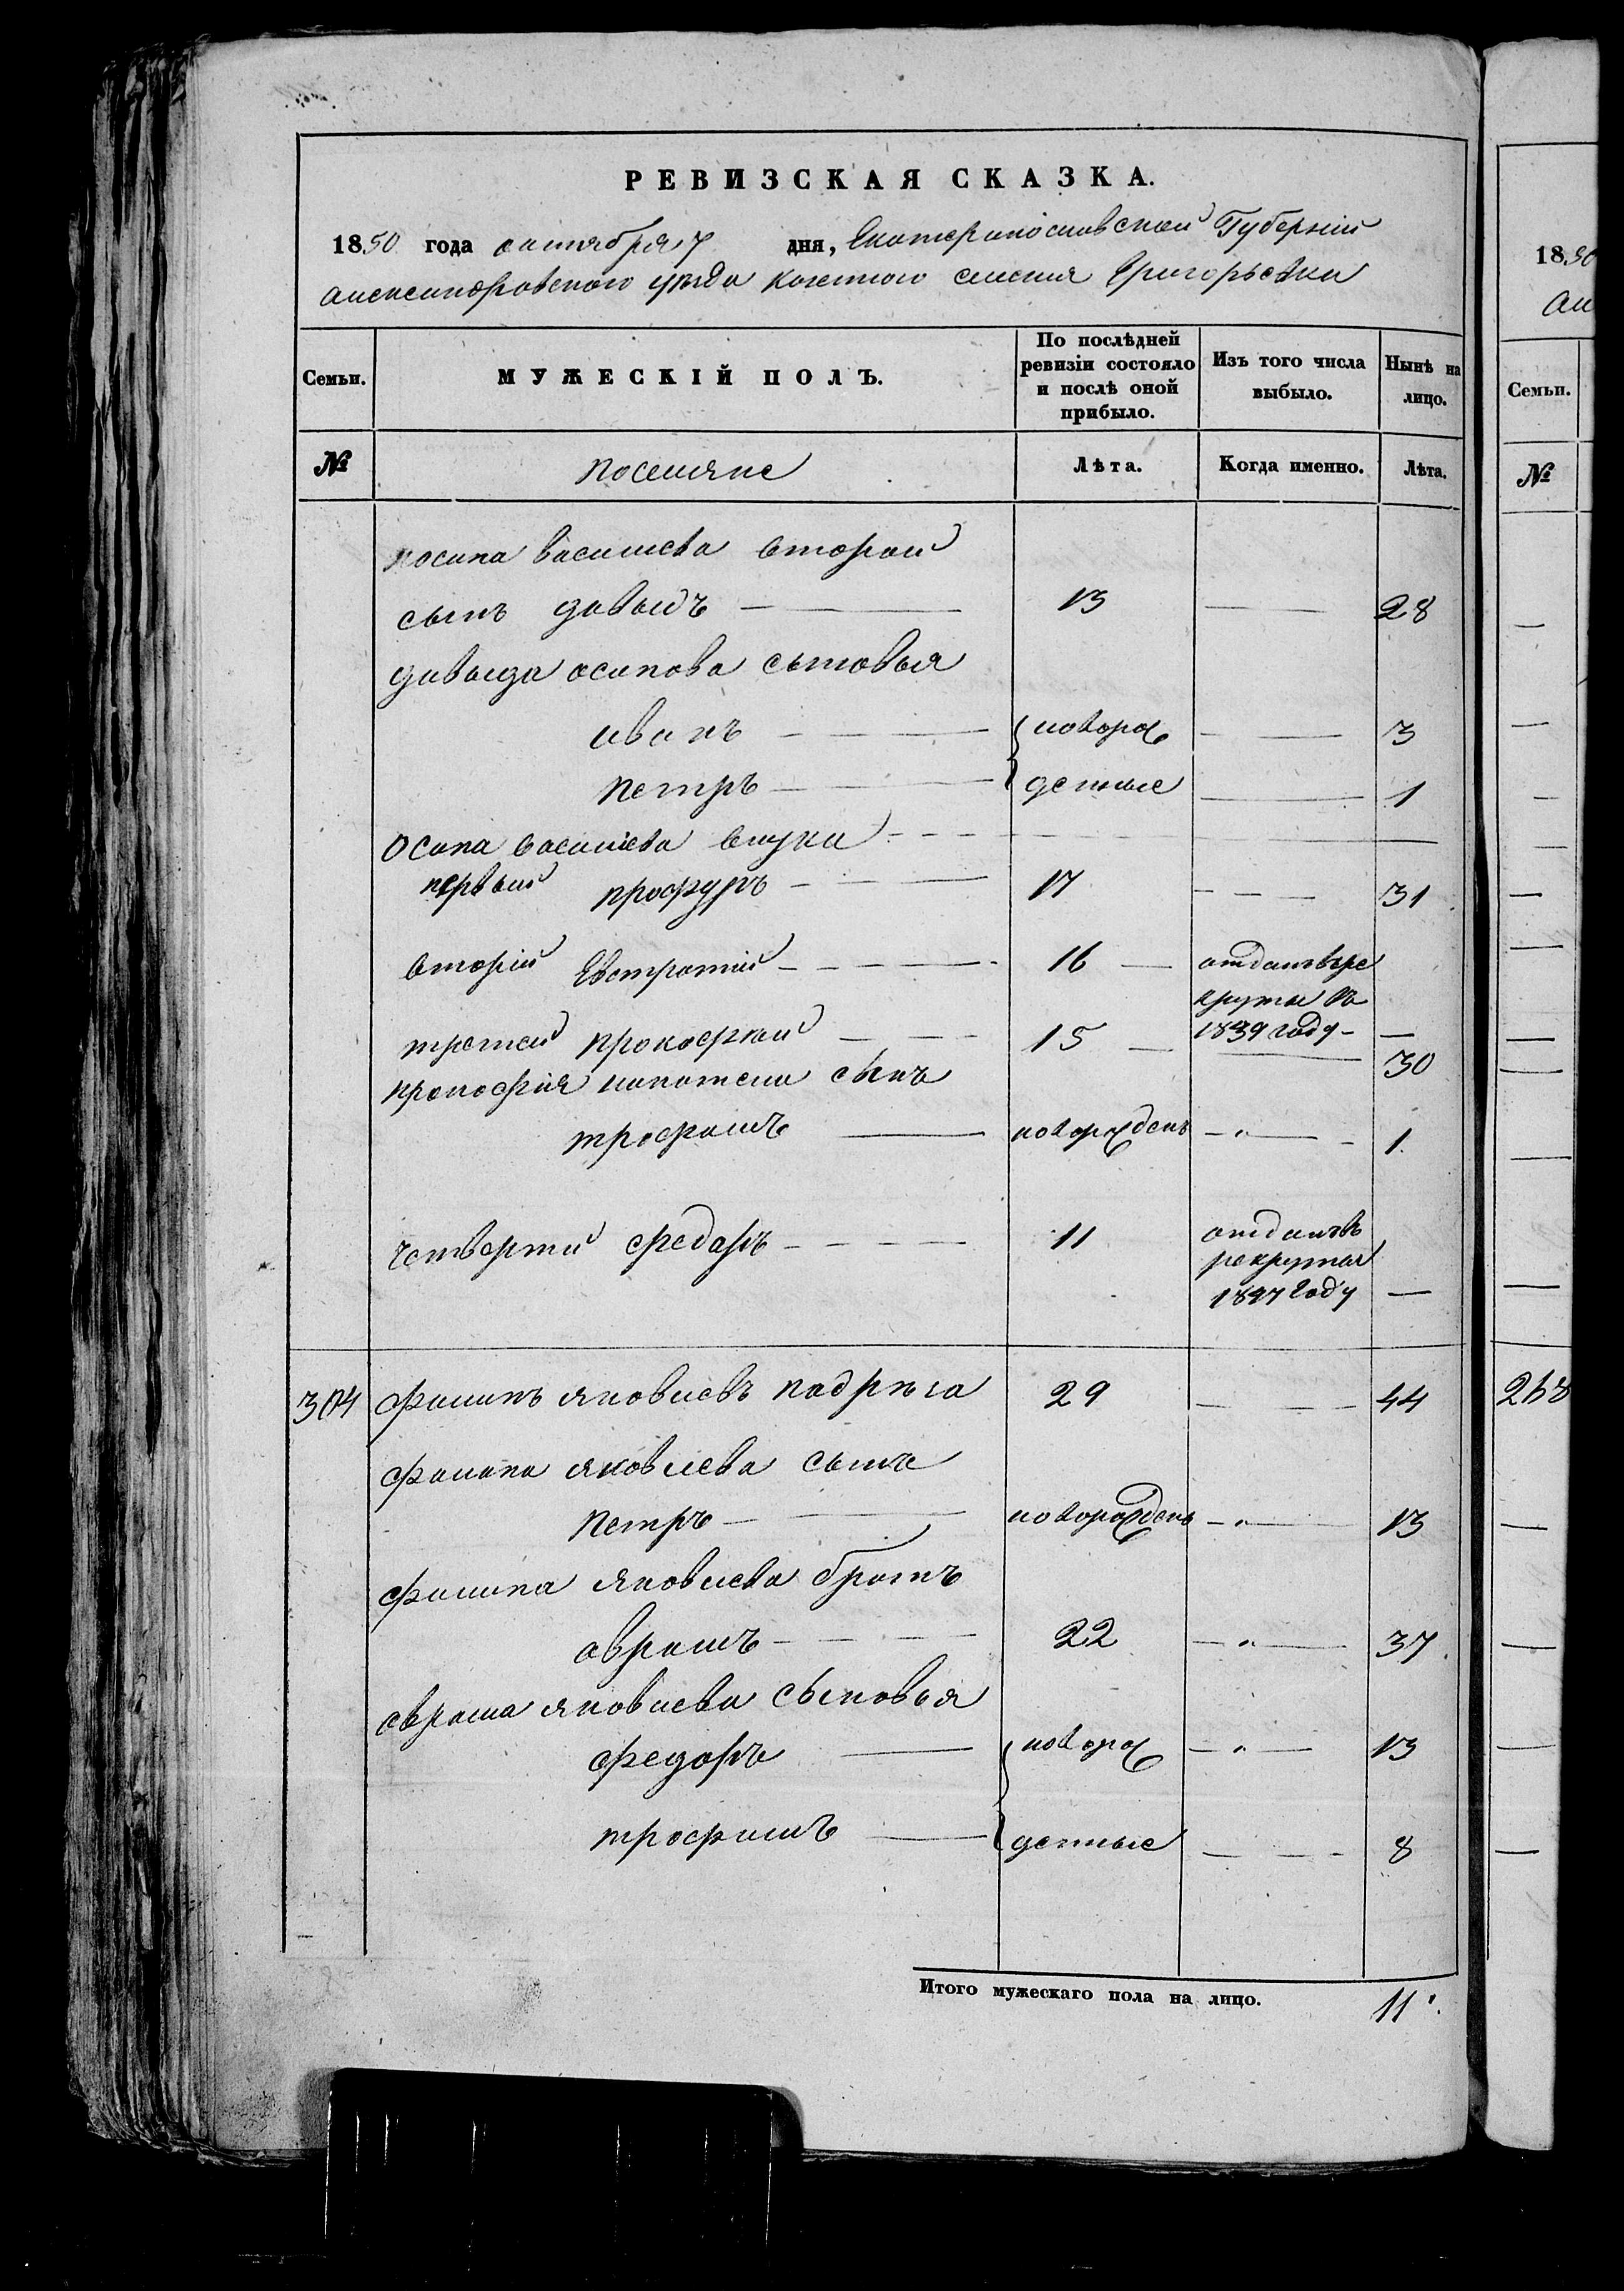 РЕВИЗСКАЯ СКАЗКА.
1850 года октября 7 дня, Екатеринославской Губернии
александровского уезда казенного селения Григорьевки
Семьи. МУЖЕСКІЙ ПОЛЪ. По послѣдней ревизіи состояло и послѣ оной прибыло. Изъ того числа выбыло. Нынѣ на лицо.
№ поселяне Лѣта. Когда именно. Лѣта.
иосипа василиева второй
сынъ давыдъ 13 28
давыда осипова сыновья
иванъ новорож 3
петръ денные 1
осипа василиева внуки
первый 17 31
вторій Евстратий 16 отданъ въ ре
круты въ
третей прокофий 15 1839 году
прокофия сынъ 30
трофимъ новорожденъ 1
четвертий федоръ 11 отданъ в
рекруты
1847 году
304 филипъ яковлевъ 29 44
филипа яковлева сынъ
петръ новорожденъ 13
филипа яковлева братъ
аврамъ 22 37
аврама яковлева сыновья
федоръ новорож 13
трофимъ денные 8
Итого мужескаго пола на лицо. 11
1850
Ал
Семьи.
№
268